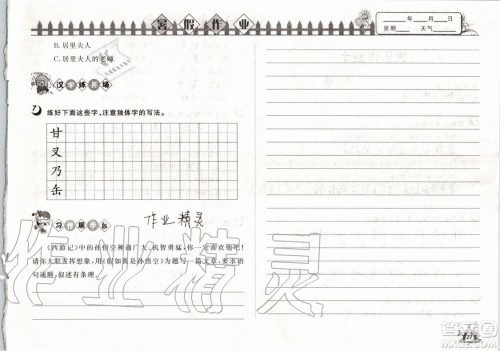 暑假作业
____年____月____日
星期____ 天气____
B. 居里夫人
C. 居里夫人的老师
汉字练习场
练好下面这些字,注意独体字的写法。
甘
叉
乃
岳
习作展示台
作业精灵
《西游记》中的孙悟空神通广大,机智勇猛,你一定喜欢他吧!
请你大胆发挥想象,用《假如我是孙悟空》为题写一篇文章,要求语
句通顺,叙述有条理。
作业精灵